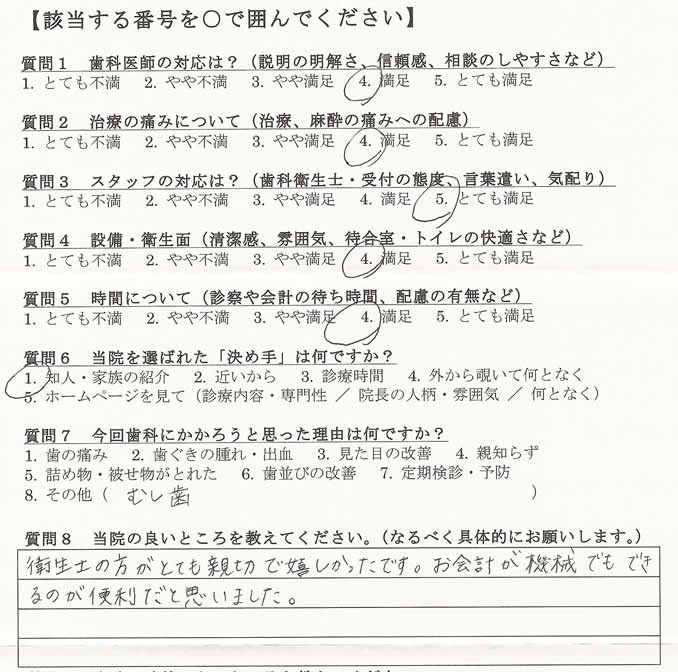 【該当する番号を〇で囲んでください】
質問1　歯科医師の対応は？（説明の明解さ、信頼感、相談のしやすさなど）
1. とても不満　2. やや不満　3. やや満足　4. 満足　5. とても満足
質問2　治療の痛みについて（治療、麻酔の痛みへの配慮）
1. とても不満　2. やや不満　3. やや満足　4. 満足　5. とても満足
質問3　スタッフの対応は？（歯科衛生士・受付の態度、言葉遣い、気配り）
1. とても不満　2. やや不満　3. やや満足　4. 満足　5. とても満足
質問4　設備・衛生面（清潔感、雰囲気、待合室・トイレの快適さなど）
1. とても不満　2. やや不満　3. やや満足　4. 満足　5. とても満足
質問5　時間について（診察や会計の待ち時間、配慮の有無など）
1. とても不満　2. やや不満　3. やや満足　4. 満足　5. とても満足
質問6　当院を選ばれた「決め手」は何ですか？
1. 知人・家族の紹介　2. 近いから　3. 診療時間　4. 外から覗いて何となく
5. ホームページを見て（診療内容・専門性 ／ 院長の人柄・雰囲気 ／ 何となく）
質問7　今回歯科にかかろうと思った理由は何ですか？
1. 歯の痛み　2. 歯ぐきの腫れ・出血　3. 見た目の改善　4. 親知らず
5. 詰め物・被せ物がとれた　6. 歯並びの改善　7. 定期検診・予防
8. その他（　むし歯　）
質問8　当院の良いところを教えてください。（なるべく具体的にお願いします。）
衛生士の方がとても親切で嬉しかったです。お会計が機械でもでき
るのが便利だと思いました。